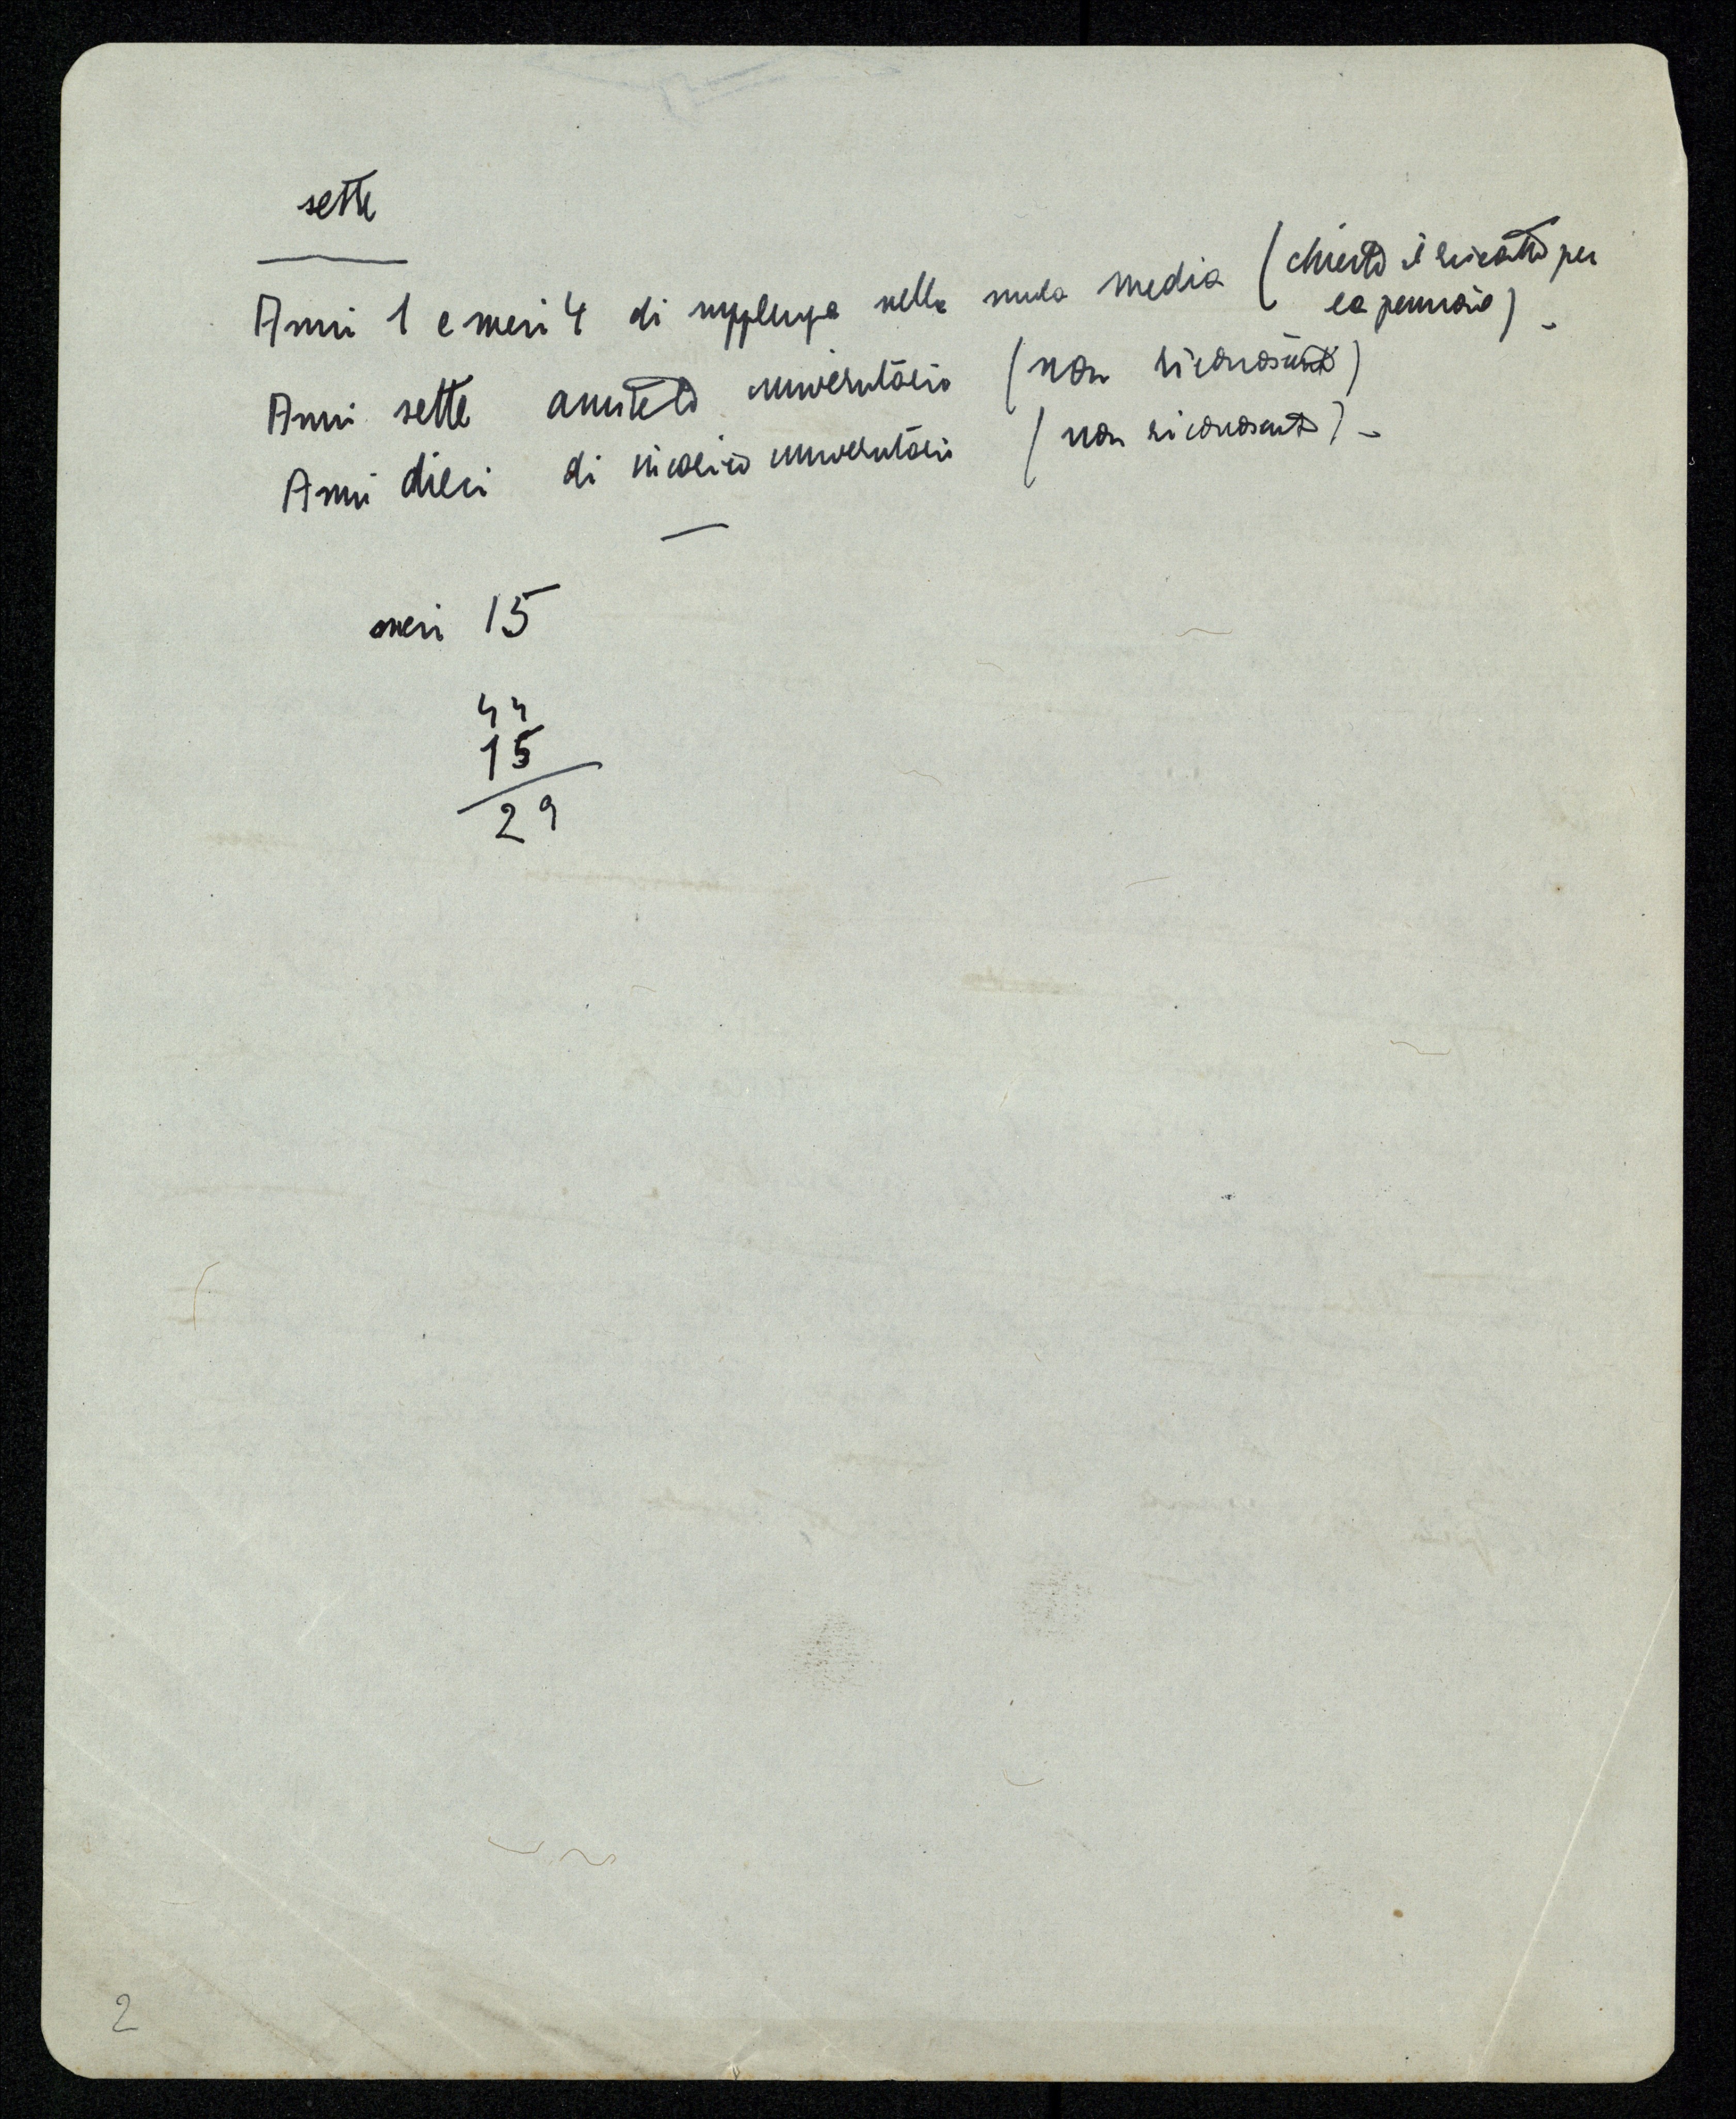 sette
Anni 1 e mesi 4 di supplenza nella scuola media (chiesto il riscatto per
la pensione) -
Anni sette assistentato universitario (non riconosciuto)
Anni dieci di incarico universitario (non riconosciuto) -
mesi 15
44
15
29
2